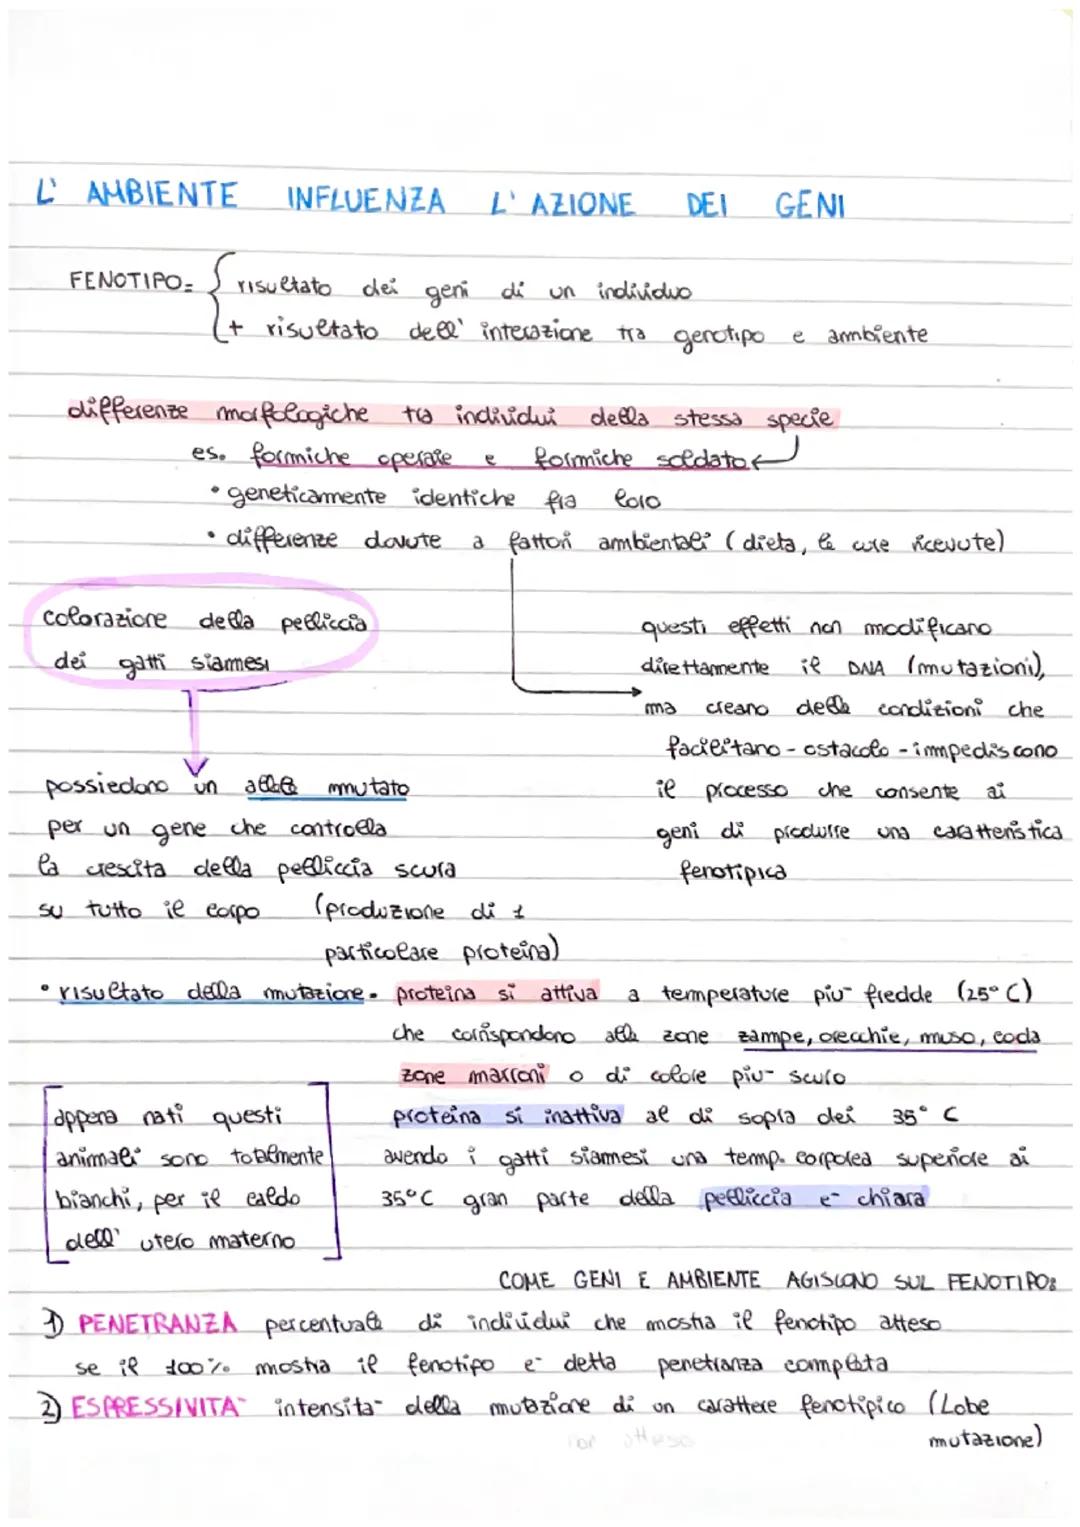 L' AMBIENTE INFLUENZA L' AZIONE DEI GENI
FENOTIPO= risultato dei geni di un individuo
+ risultato dell' interazione tra genotipo e ambiente
differenze morfologiche tra individui della stessa specie
es. formiche operaie e formiche soldato
• geneticamente identiche fra loro
• differenze dovute a fattori ambientali (dieta, le cure ricevute)
colorazione della pelliccia
dei gatti siamesi
questi effetti non modificano
direttamente il DNA (mutazioni),
ma creano delle condizioni che
facilitano - ostacolo - impediscono
il processo che consente ai
geni di produrre una caratteristica
fenotipica
possiedono un allele mutato
per un gene che controlla
la crescita della pelliccia scura
su tutto il corpo (produzione di 1
particolare proteina)
• risultato della mutazione. proteina si attiva a temperature piu- fredde (25° C)
che corrispondono alle zone zampe, orecchie, muso, coda
zone marroni o di colore piu- scuro
proteina si inattiva al di sopra dei 35° C
avendo i gatti siamesi una temp. corporea superiore ai
35°C gran parte della pelliccia e- chiara
appena nati questi
animali sono totalmente
bianchi, per il caldo
dell' utero materno
COME GENI E AMBIENTE AGISCONO SUL FENOTIPO:
1) PENETRANZA percentuale di individui che mostra il fenotipo atteso
se il 100% mostra il fenotipo e- detta penetranza completa
2) ESPRESSIVITA- intensita- della mutazione di un carattere fenotipico (Lobe
mutazione)
non atteso